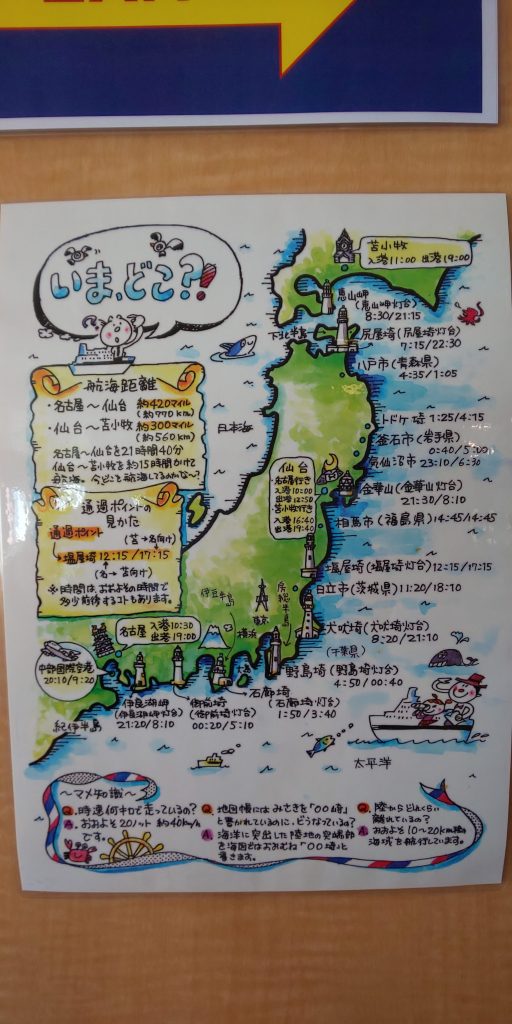 いま、どこ??
苫小牧
入港11:00 出港19:00
恵山岬
(恵山岬灯台)
8:30/21:15
下北半島
尻屋埼(尻屋埼灯台)
7:15/22:30
八戸市(青森県)
4:35/1:05
航海距離
・名古屋～仙台 約420マイル
(約770km)
・仙台～苫小牧 約300マイル
(約560km)
名古屋～仙台を21時間40分
仙台～苫小牧を約15時間かけて
日本海
トドケ埼 1:25/4:15
釜石市(岩手県)
0:40/5:00
気仙沼市 23:10/6:30
金華山(金華山灯台)
21:30/8:10
相馬市(福島県)14:45/14:45
仙台
名古屋行き
入港10:00
出港12:50
苫小牧行き
入港16:40
出港19:40
通過ポイントの
見かた
通過ポイント
(苫→名向け)
塩屋埼 12:15/17:15
(名→苫向け)
※時間は、おおよその時間で
多少前後するコトもあります。
塩屋埼(塩屋埼灯台)12:15/17:15
日立市(茨城県)11:20/18:10
犬吠埼(犬吠埼灯台)
8:20/21:10
(千葉県)
伊豆半島
房総半島
東京
横浜
大島
名古屋 入港10:30
出港19:00
中部国際空港
20:10/9:20
野島埼(野島埼灯台)
4:50/00:40
石廊埼
(石廊埼灯台)
1:50/3:40
伊良湖岬
(伊良湖岬灯台)
21:20/8:10
御前埼
(御前埼灯台)
00:20/5:10
紀伊半島
太平洋
～マメ知識～
Q.時速何キロで走っているの?
A.おおよそ20ノット 約40km/h
です。
Q.地図帳にはみさきを「〇〇崎」
と書かれているのに、どうなっているの?
A.海洋に突出した陸地の突端部
を海図ではおおむね「〇〇埼」と
書きます。
Q.陸からどれくらい
離れているの?
A.おおよそ10～20km程の
海域を航行しています。